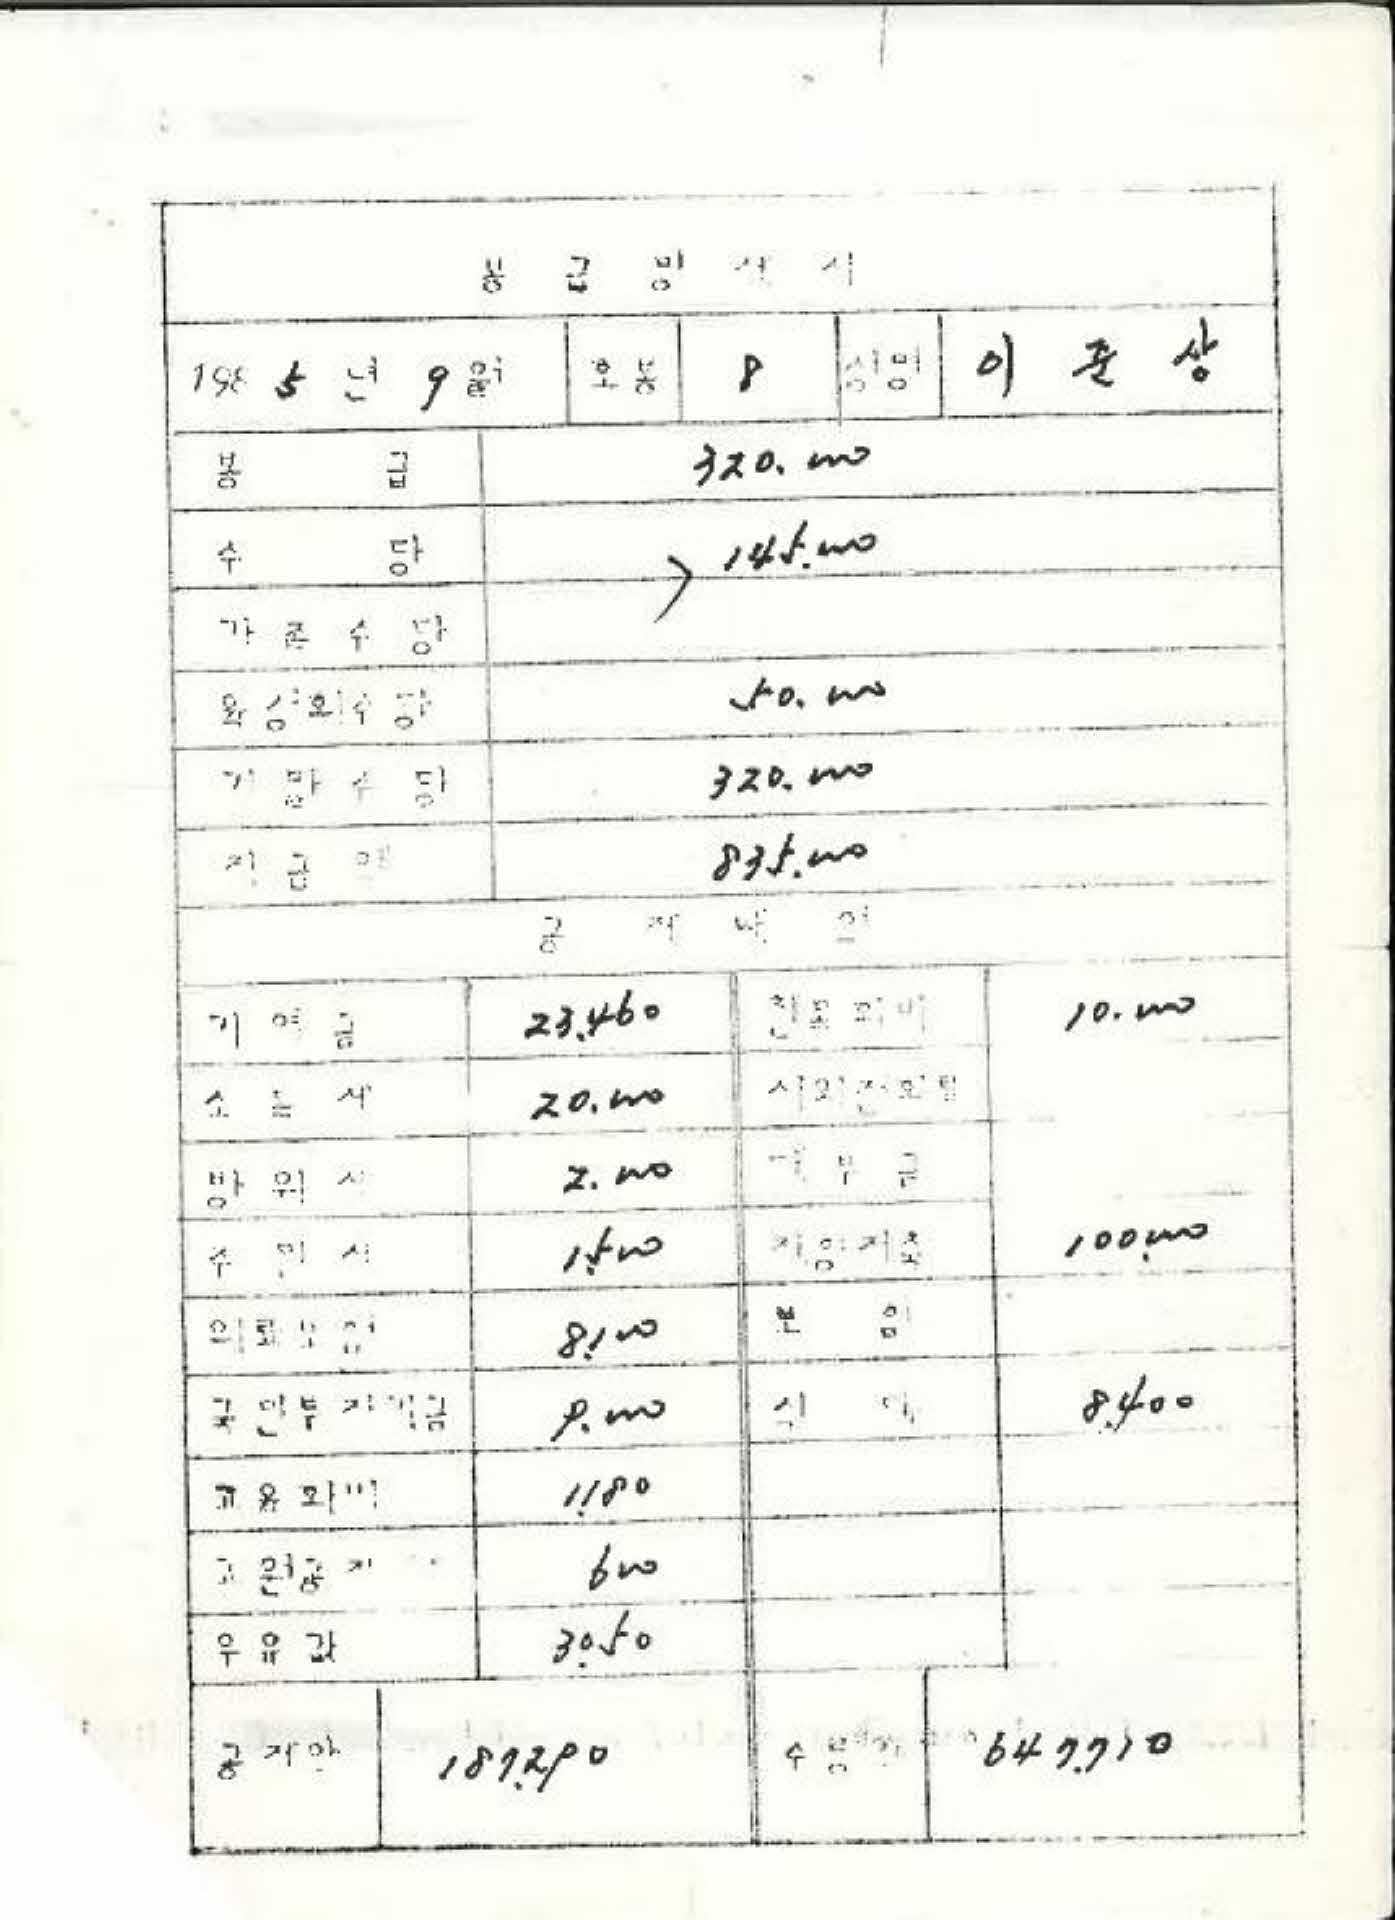 봉 급 명 세 서
1985년 9월 호봉 8 성명 이준상
봉 급 320.000
수 당 145.000
가족수당
육성회수당 50.000
기말수당 320.000
지급액 835.000
공 제 내 역
기여금 23.460 친목회비 10.000
소득세 20.000 시외전화료
방위세 2.000 대부금
주민세 1500 재형저축 100.000
의료보험 8.100 본 임
국민투자기금 9.000 식 대 8.400
교육회비 1180
교원공제 600
우유값 3050
공제액 187.290 수봉액 647.710